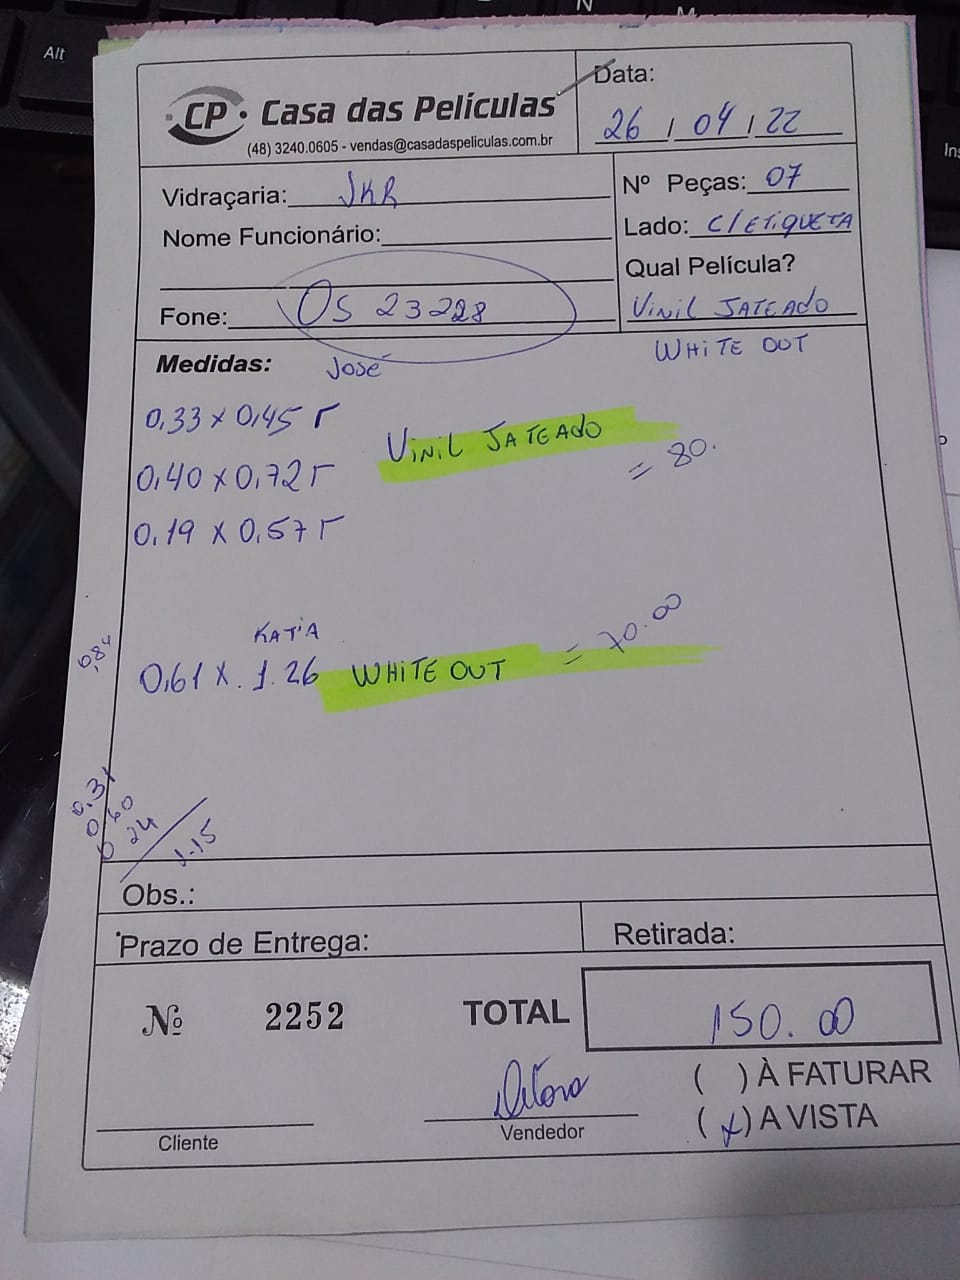 Alt
N
M
Ins
CP · Casa das Películas
(48) 3240.0605 - vendas@casadaspeliculas.com.br
Data:
26 / 04 / 22
Vidraçaria: JKR
Nº Peças: 07
Nome Funcionário:
Lado: C/ ETIQUETA
Qual Película?
Fone: OS 23228
VINIL JATEADO
WHITE OUT
Medidas: José
0,33 x 0,45 Γ
VINIL JATEADO = 80.
0,40 x 0,72 Γ
0,19 x 0,57 Γ
KATIA
0,61 x 1.26 WHITE OUT = 70.00
0,84
0,31
0,60
0 24
1.15
Obs.:
Prazo de Entrega:
Retirada:
Nº 2252
TOTAL 150.00
( ) À FATURAR
(x) A VISTA
Cliente
Vendedor